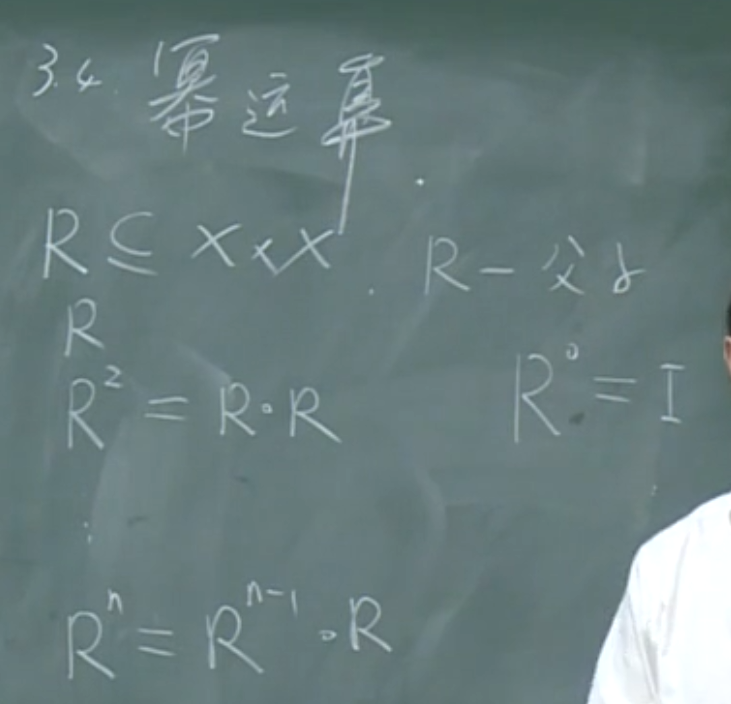 3.4. 幂运算
R ⊆ X × X R - 父子
R
R² = R∘R R⁰ = I
⋮
Rⁿ = Rⁿ⁻¹∘R